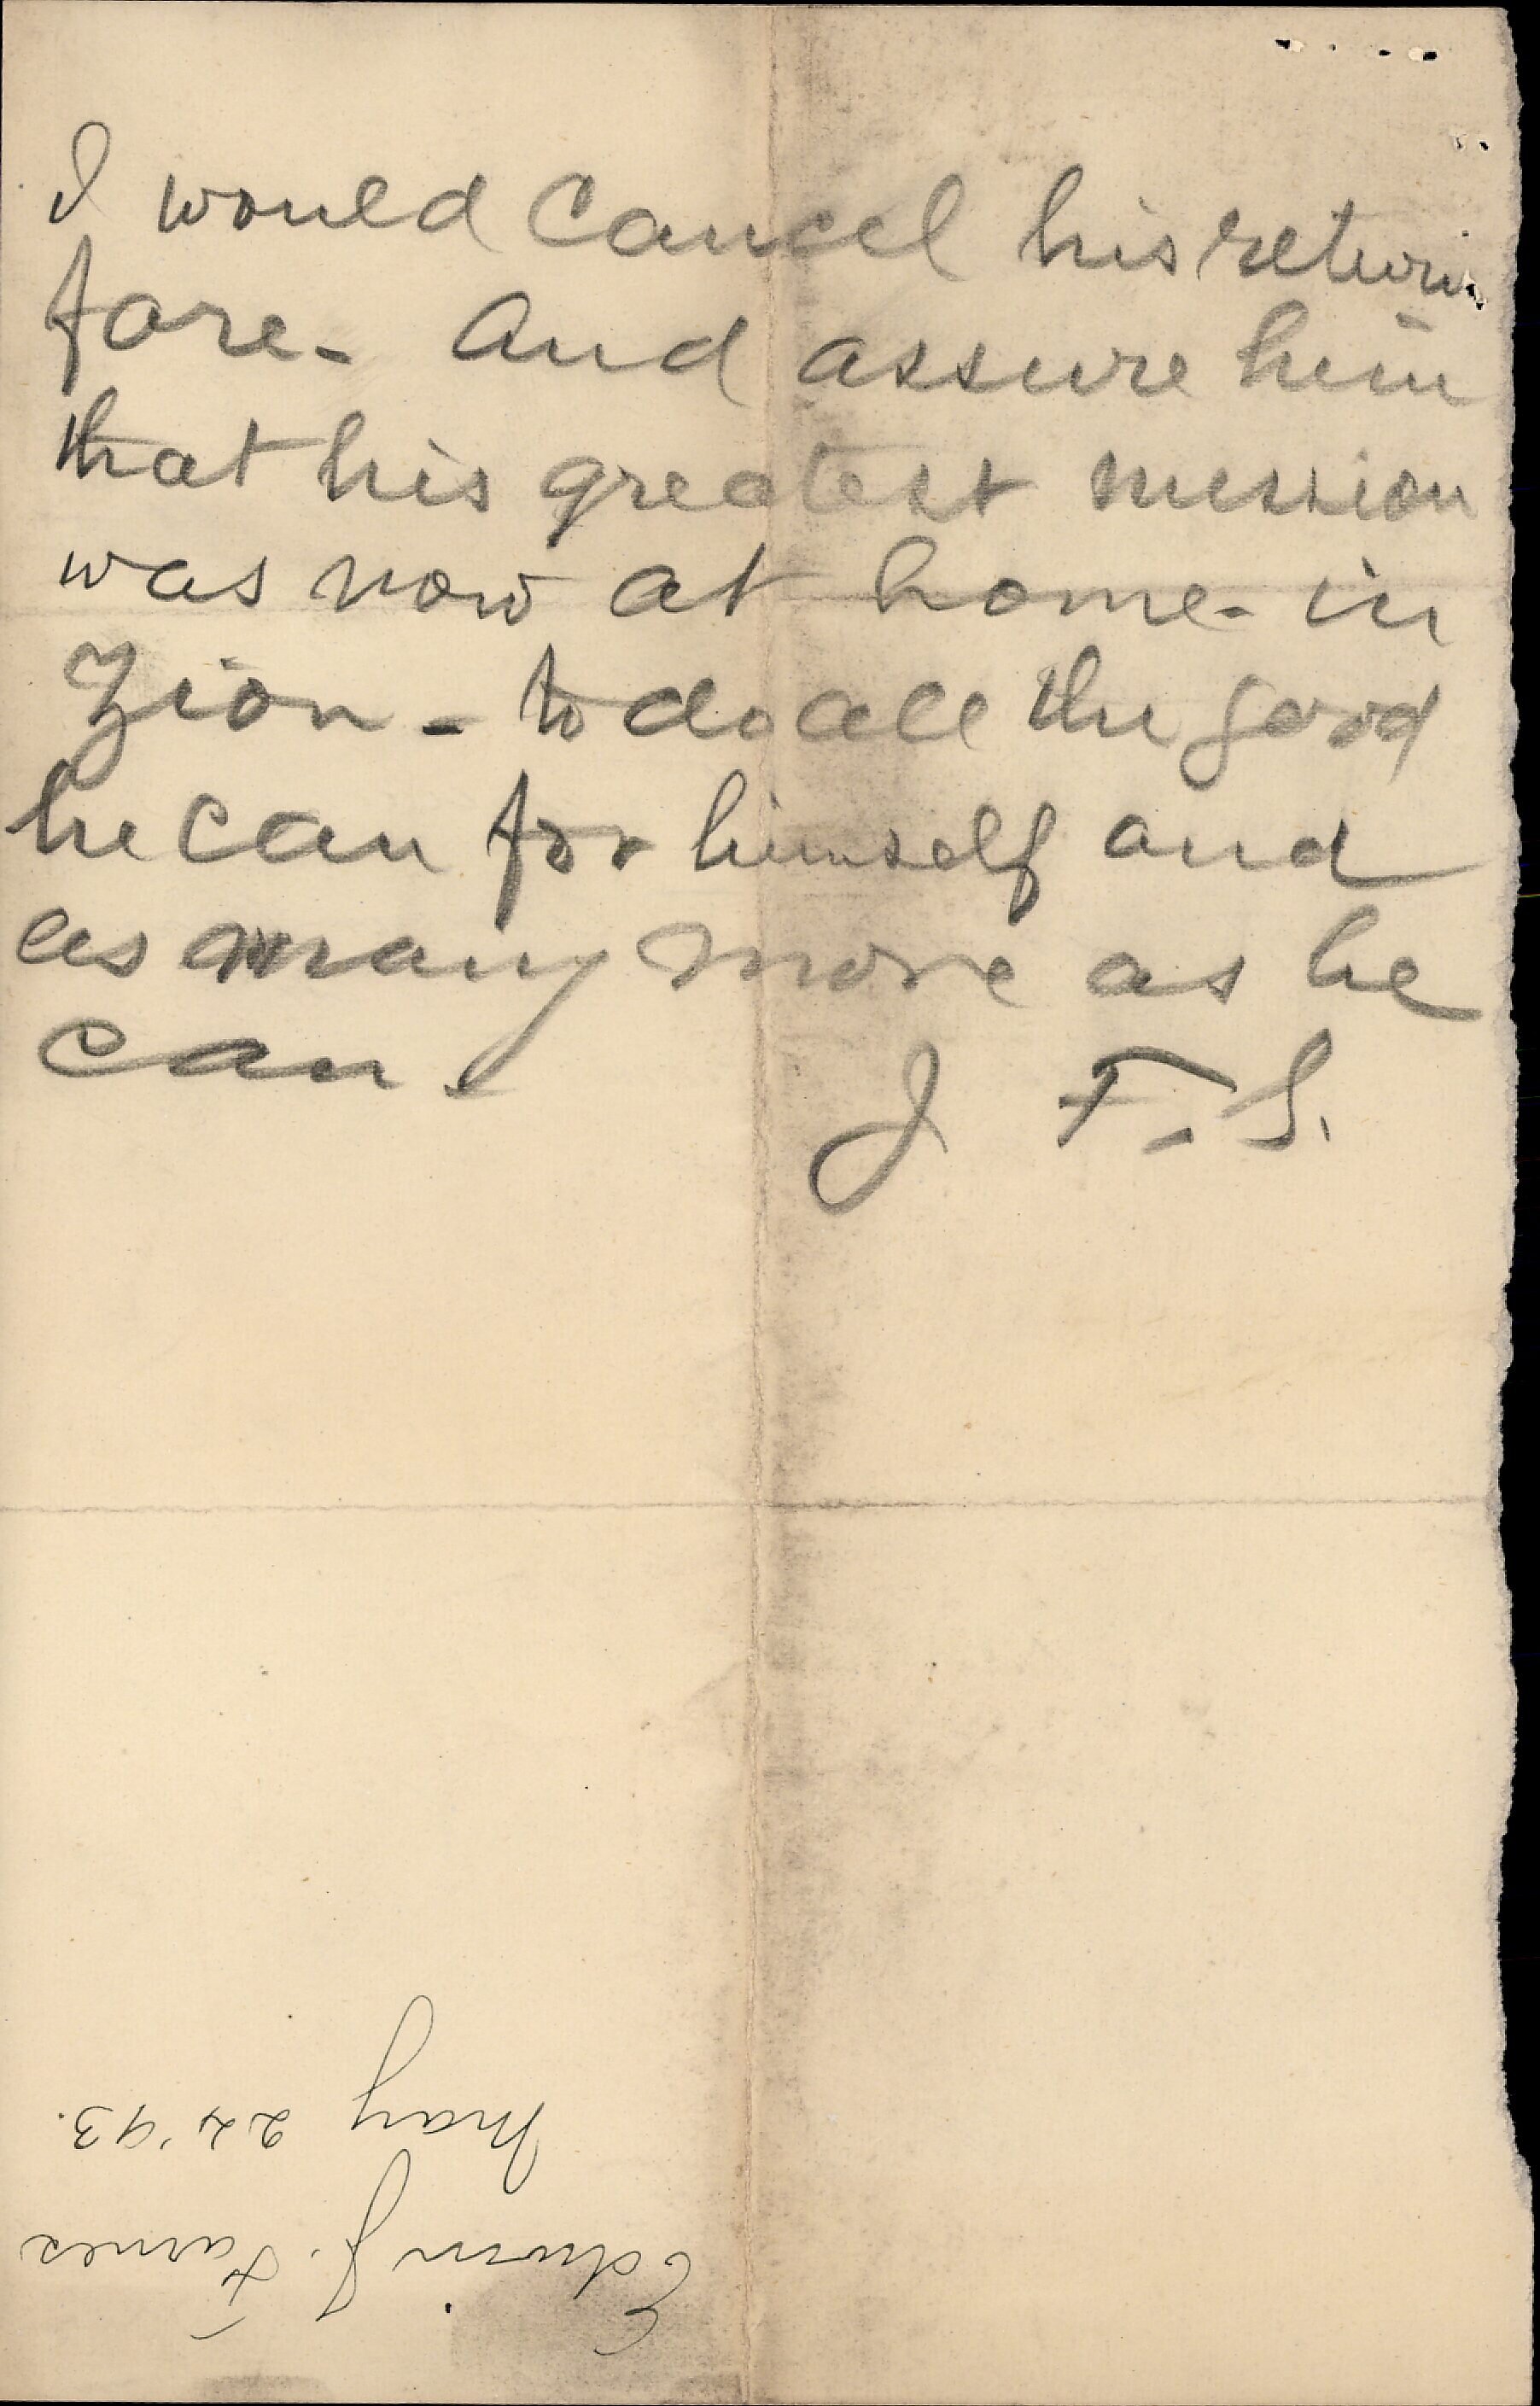 I would cancel his return
fare - and assure him
that his greatest mission
was now at home - in
Zion - to do all the good
he can for himself and
as many more as he
can.
J F. S.
Edwin J. Farnes
May 22 '93.